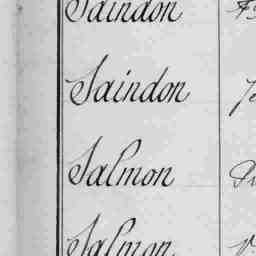 Saindon
Saindon
Salmon
Salmon